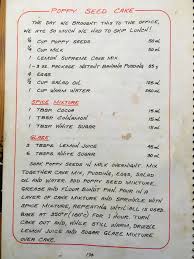 POPPY SEED CAKE
THE DAY WE BROUGHT THIS TO THE OFFICE,
WE ATE SO MUCH WE HAD TO SKIP LUNCH!
CUP POPPY SEEDS 50 mL
CUP MILK 50 mL
1 LEMON SUPREME CAKE MIX
1 - 3 oz. PACKAGE INSTANT BANANA PUDDING 85 g
4 EGGS
CUP SALAD OIL 125 mL
1 CUP WARM WATER 250 mL
SPICE MIXTURE
1 TBSP COCOA 15 mL
1 TBSP CINNAMON 15 mL
1 TBSP WHITE SUGAR 15 mL
GLAZE
3 TBSPS LEMON JUICE 45 mL
TBSPS WHITE SUGAR 30 mL
SOAK POPPY SEEDS IN MILK OVERNIGHT. MIX
TOGETHER CAKE MIX, PUDDING, EGGS, SALAD
OIL, AND WATER. ADD POPPY SEED MIXTURE.
GREASE AND FLOUR BUNDT PAN. POUR IN A
LAYER OF CAKE MIXTURE AND SPRINKLE WITH
SPICE MIXTURE, REPEATING UNTIL ALL IS USED.
BAKE AT 350°F (180°C) FOR 1 HOUR. TURN
CAKE OUT AND, WHILE STILL WARM, DRIZZLE
LEMON JUICE AND SUGAR GLAZE MIXTURE
OVER CAKE.